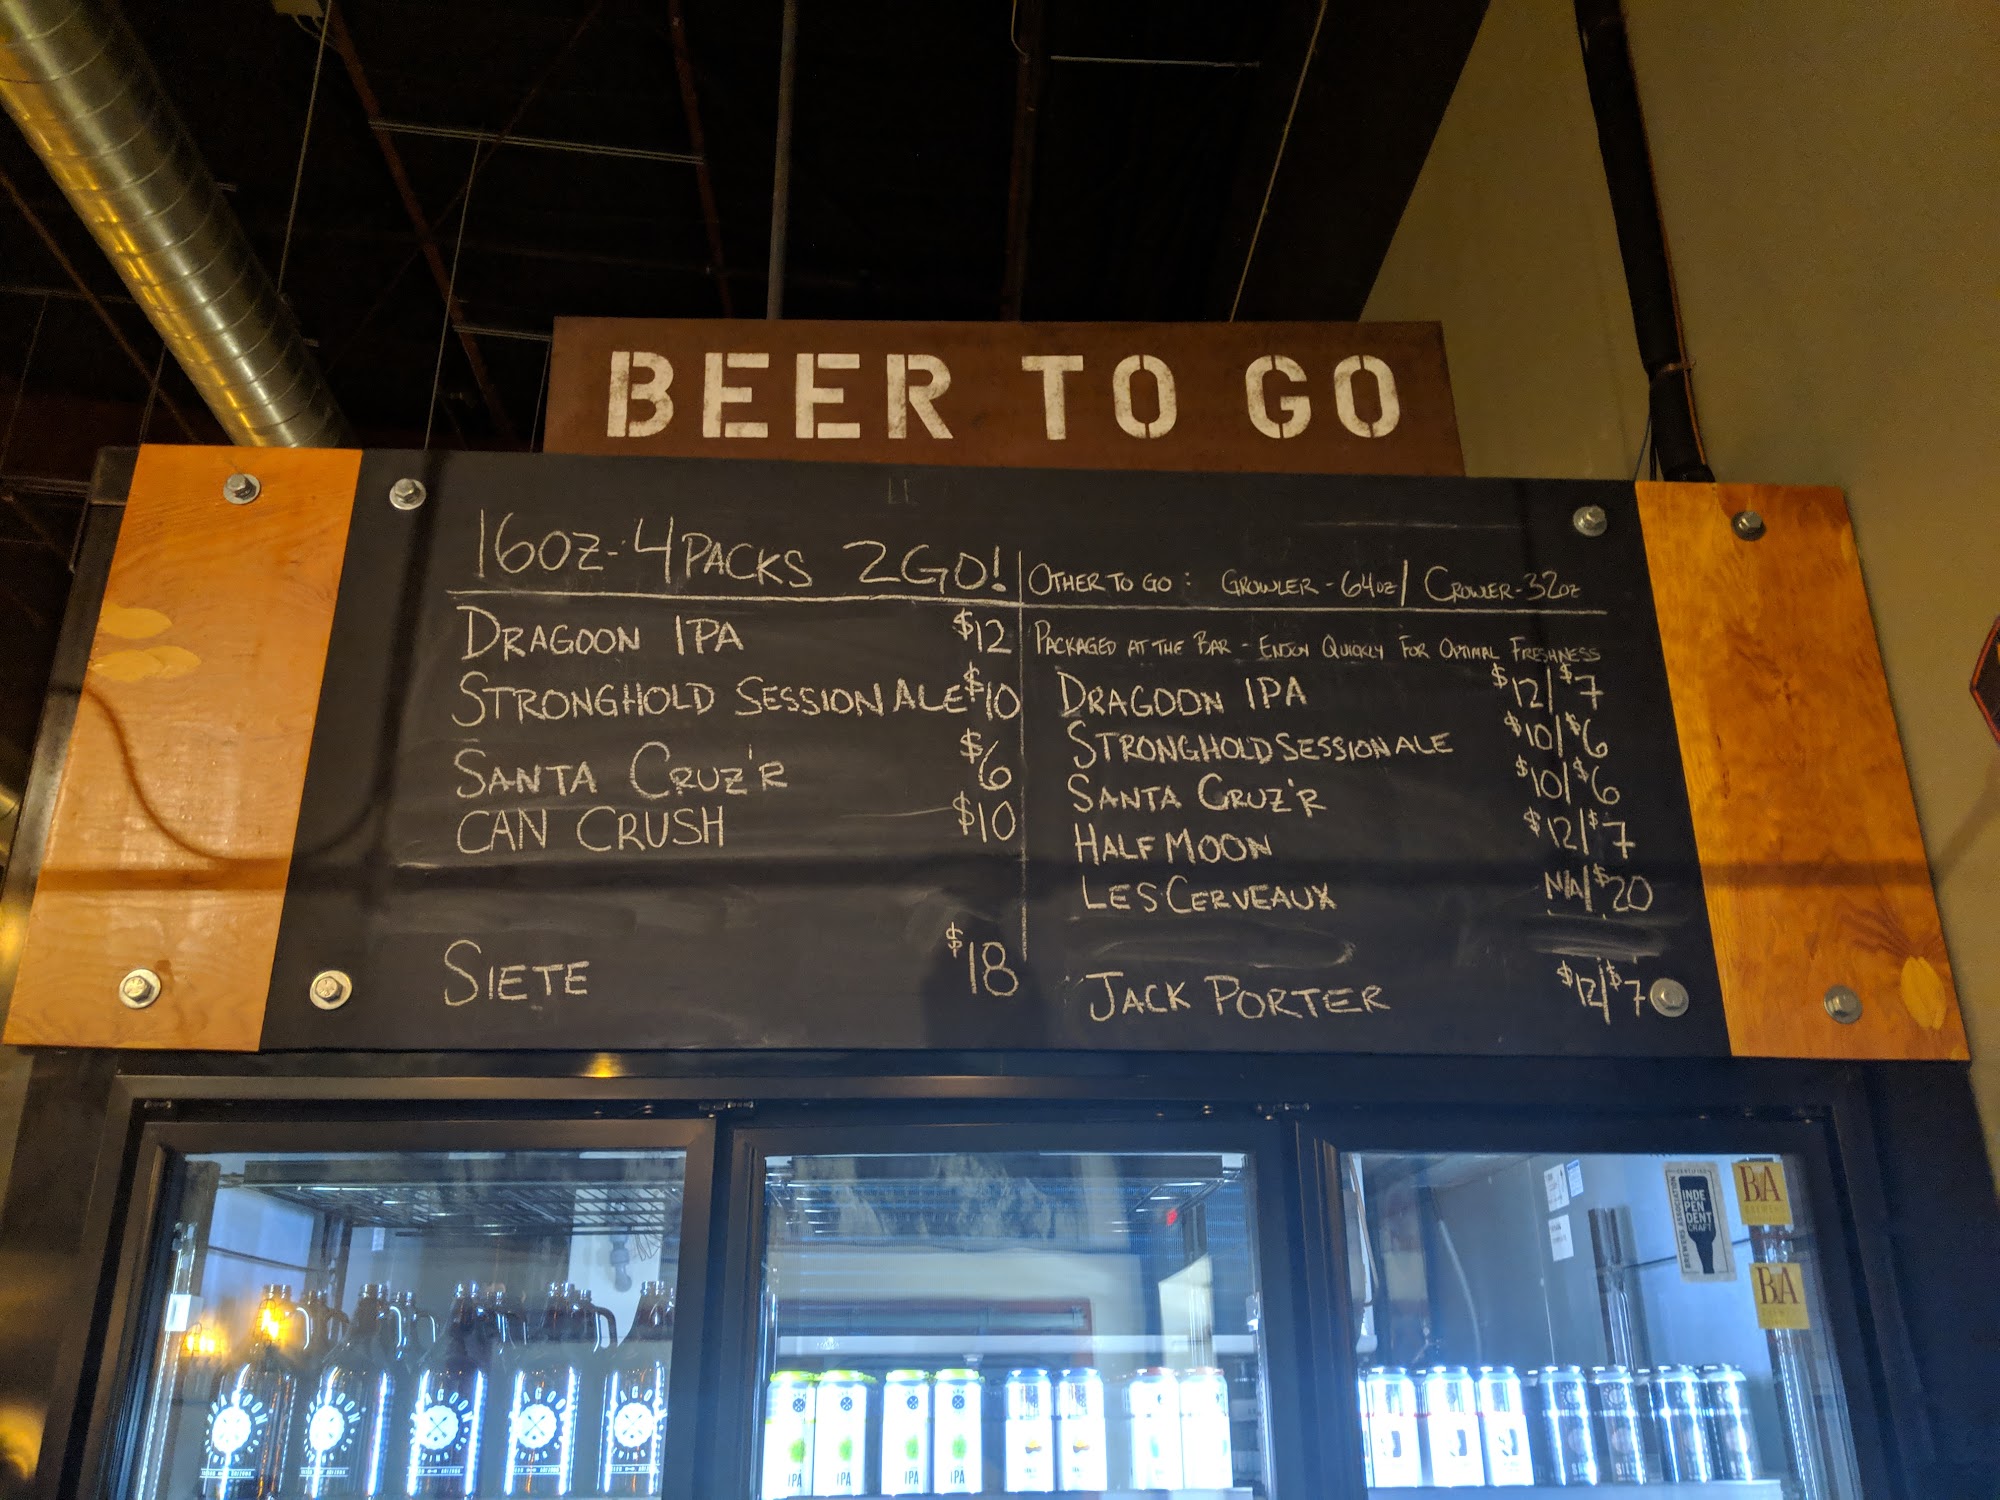 BEER TO GO
16OZ-4PACKS 2GO!
DRAGOON IPA $12
STRONGHOLD SESSION ALE $10
SANTA CRUZ'R $6
CAN CRUSH $10
SIETE $18
OTHER TO GO: GROWLER-64OZ/ CROWLER-32OZ
PACKAGED AT THE BAR - ENJOY QUICKLY FOR OPTIMAL FRESHNESS
DRAGOON IPA $12/$7
STRONGHOLD SESSION ALE $10/$6
SANTA CRUZ'R $10/$6
HALF MOON $12/$7
LES CERVEAUX N/A/$20
JACK PORTER $12/$7
CERTIFIED
INDE
PEN
DENT
CRAFT
BREWERS ASSOCIATION
BA
BA
DRAGOON
IPA
IPA
IPA
IPA